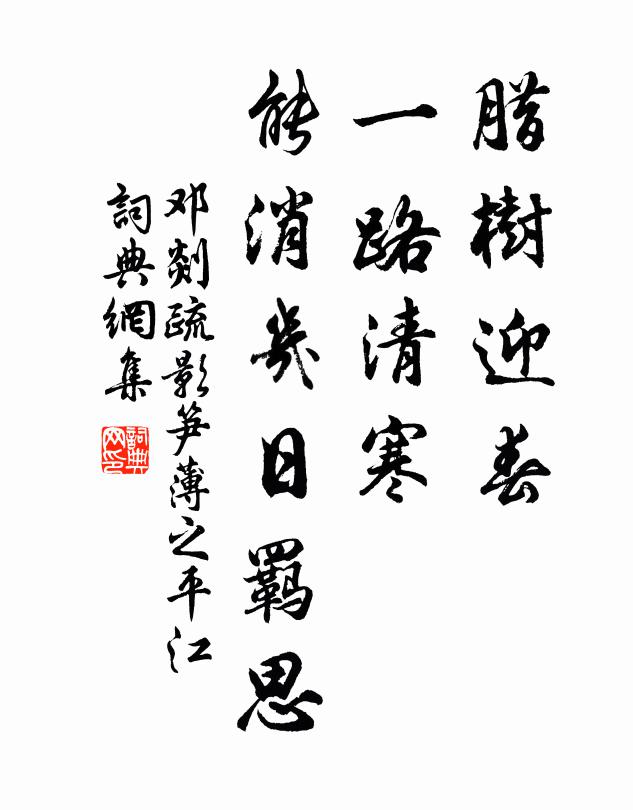 腊樹迎春
一路清寒
能消幾日羈思
邓剡疏影笋薄之平江
詞典網集
詞典网印